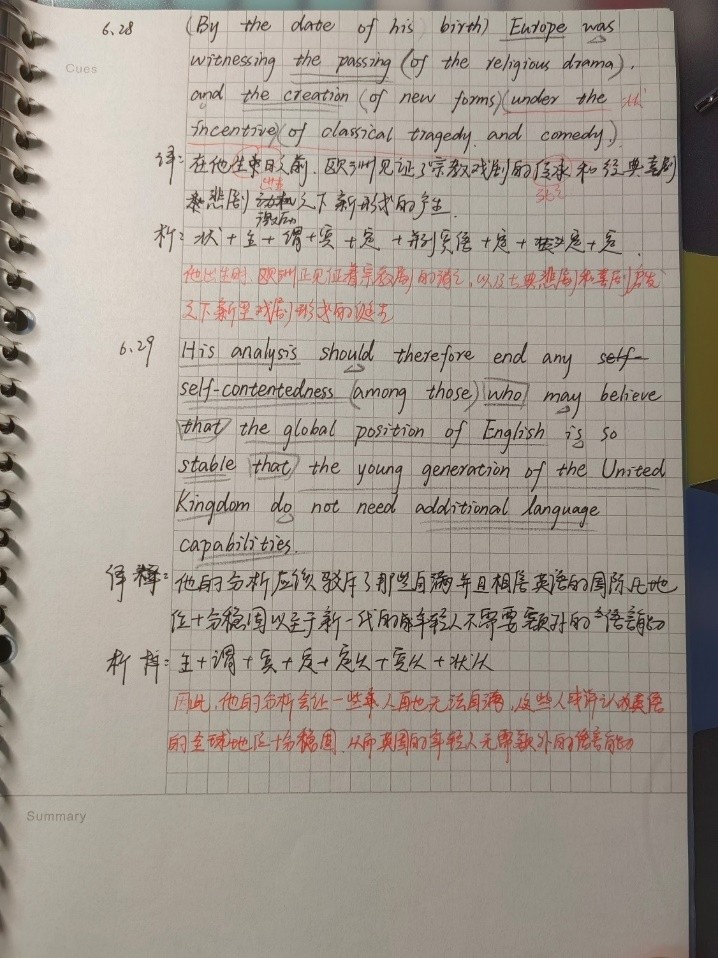 Cues
6.28 (By the date of his birth) Europe was
witnessing the passing (of the religious drama),
and the creation (of new forms) (under the
incentive) (of classical tragedy and comedy).
译: 在他生来日之前, 欧洲见证了宗教戏剧的传承和经典喜剧
悲剧 之下新形式的产生.
析: 状+主+谓+宾+定+并列宾语+定+状+定
他出生时, 欧洲正见证着宗教剧的消亡, 以及古典悲剧和喜剧启发
之下新型戏剧形式的诞生
6.29 His analysis should therefore end any self-
self-contentedness (among those) who may believe
that the global position of English is so
stable that the young generation of the United
Kingdom do not need additional language
capabilities.
译: 他的分析应该驳斥了那些自满并且相信英语的国际地
位十分稳固以至于新一代的年轻人不需要额外的语言能力
析: 主+谓+宾+定+定从+宾从+状从
因此, 他的分析会让一些人再也无法自满, 这些人或许认为英语
的全球地位十分稳固, 从而英国的年轻人无需额外的语言能力
Summary